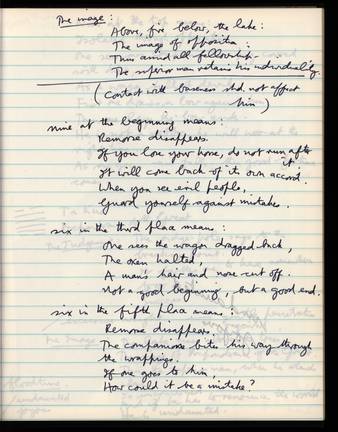 The image:
Above, fire below, the lake:
The image of opposition
Thus amid all fellowship
The superior man retains his individuality.
(Contact with baseness shd. not affect
him)
nine at the beginning means:
Remorse disappears.
If you lose your horse, do not run after
it
It will come back of its own accord.
When you see evil people,
Guard yourself against mistakes.
six in the third place means:
One sees the wagon dragged back,
The oxen halted,
A man's hair and nose cut off.
Not a good beginning, but a good end.
six in the fifth place means:
Remorse disappears.
The companion bites his way through
the wrappings.
If one goes to him,
How could it be a mistake?